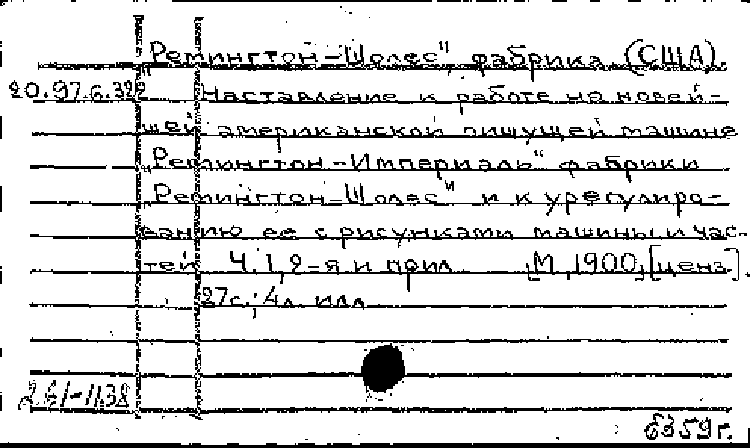 „Ремингтон-Шолес", фабрика (США).
20.97.6.322 Наставление к работе на новей-
шей американской пишущей машине
„Ремингтон-Империаль" фабрики
„Ремингтон-Шолес" и к урегулиро-
ванию ее с рисунками машины и час-
тей Ч.1, 2-я и прил [М, 1900, [ценз].
27с.; 4л. илл
261-1138
6359г.